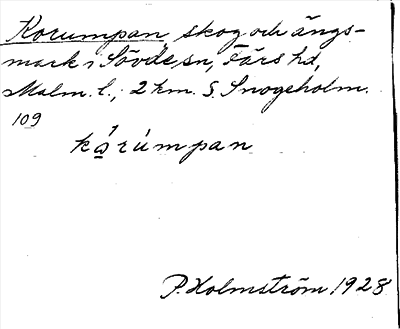 Korumpan skog och ängs-
mark i Sövde sn, Färs hd,
Malm. l., 2 km. S. Snogeholm.
109
kǫ́rúmpan
P. Holmström 1928